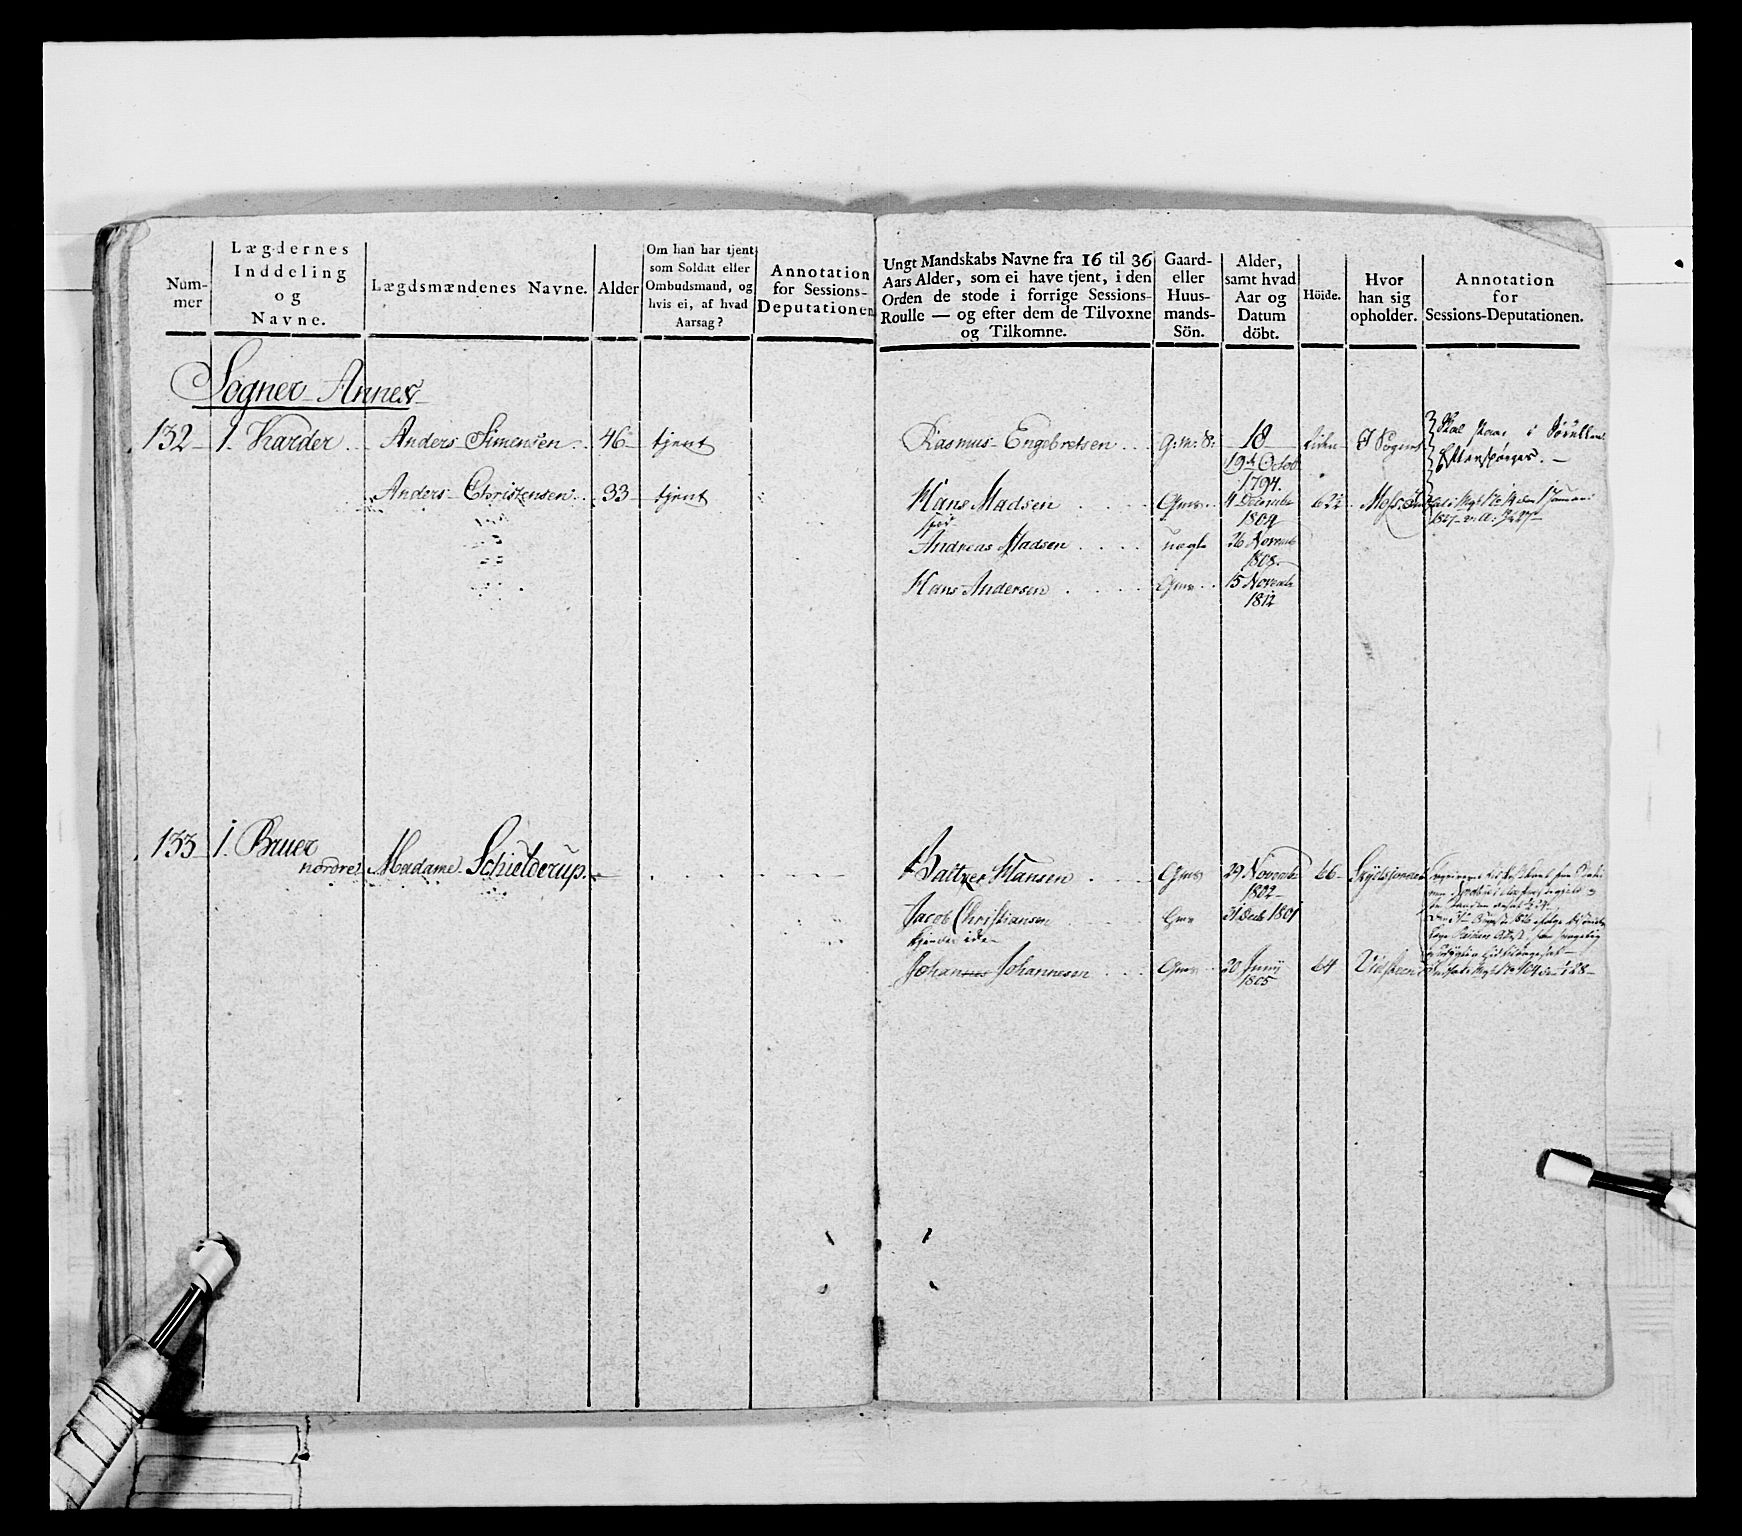 Num-
mer
Lægdernes
Inddeling
og
Navne.
Lægdsmændenes Navne.
Alder
Om han har tjent
som Soldat eller
Ombudsmand, og
hvis ei, af hvad
Aarsag?
Annotation
for Sessions-
Deputationen
Ungt Mandskabs Navne fra 16 til 36
Aars Alder, som ei have tjent, i den
Orden de stode i forrige Sessions-
Roulle — og efter dem de Tilvoxne
og Tilkomne.
Gaard-
eller
Huus-
mands-
Sön.
Alder,
samt hvad
Aar og
Datum
döbt.
Höide.
Hvor
han sig
opholder.
Annotation
for
Sessions-Deputationen.
Sogner Annex
132 1. Karder Anders Simensen 46 tjent
Anders Christensen 33 tjent
Rasmus Engebretsen G:m:S: 18 liden
19de Octob
1794.
Skal staae i
Efterspörges.
Hans Madsen Gms 4 December 622 Moss
1804
Andreas Madsen uægte 26 Novemb
1808
Hans Andersen Gms 15 Novemb
1812
133 1. Bruer
nordre Madame Schielderup.
Baltzer Hansen Gms 29 Novemb 66
1802
Jacob Christiansen Gms 21 Decb 1801
kjendes ikke
Johannes Johannesen Gms 20 Junij 64
1805